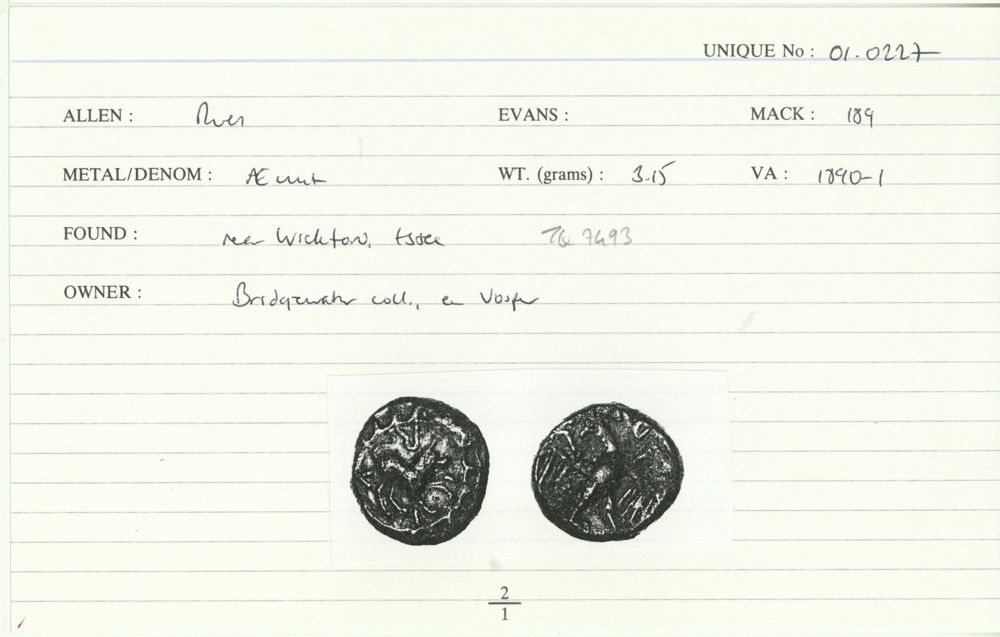 UNIQUE No : 01-0227
ALLEN : River EVANS : MACK : 189
METAL/DENOM : Æ unit WT. (grams) : 3.15 VA : 1890-1
FOUND : near Wickford, Essex TQ 7493
OWNER : Bridgewater coll., ex Vosper
2
1